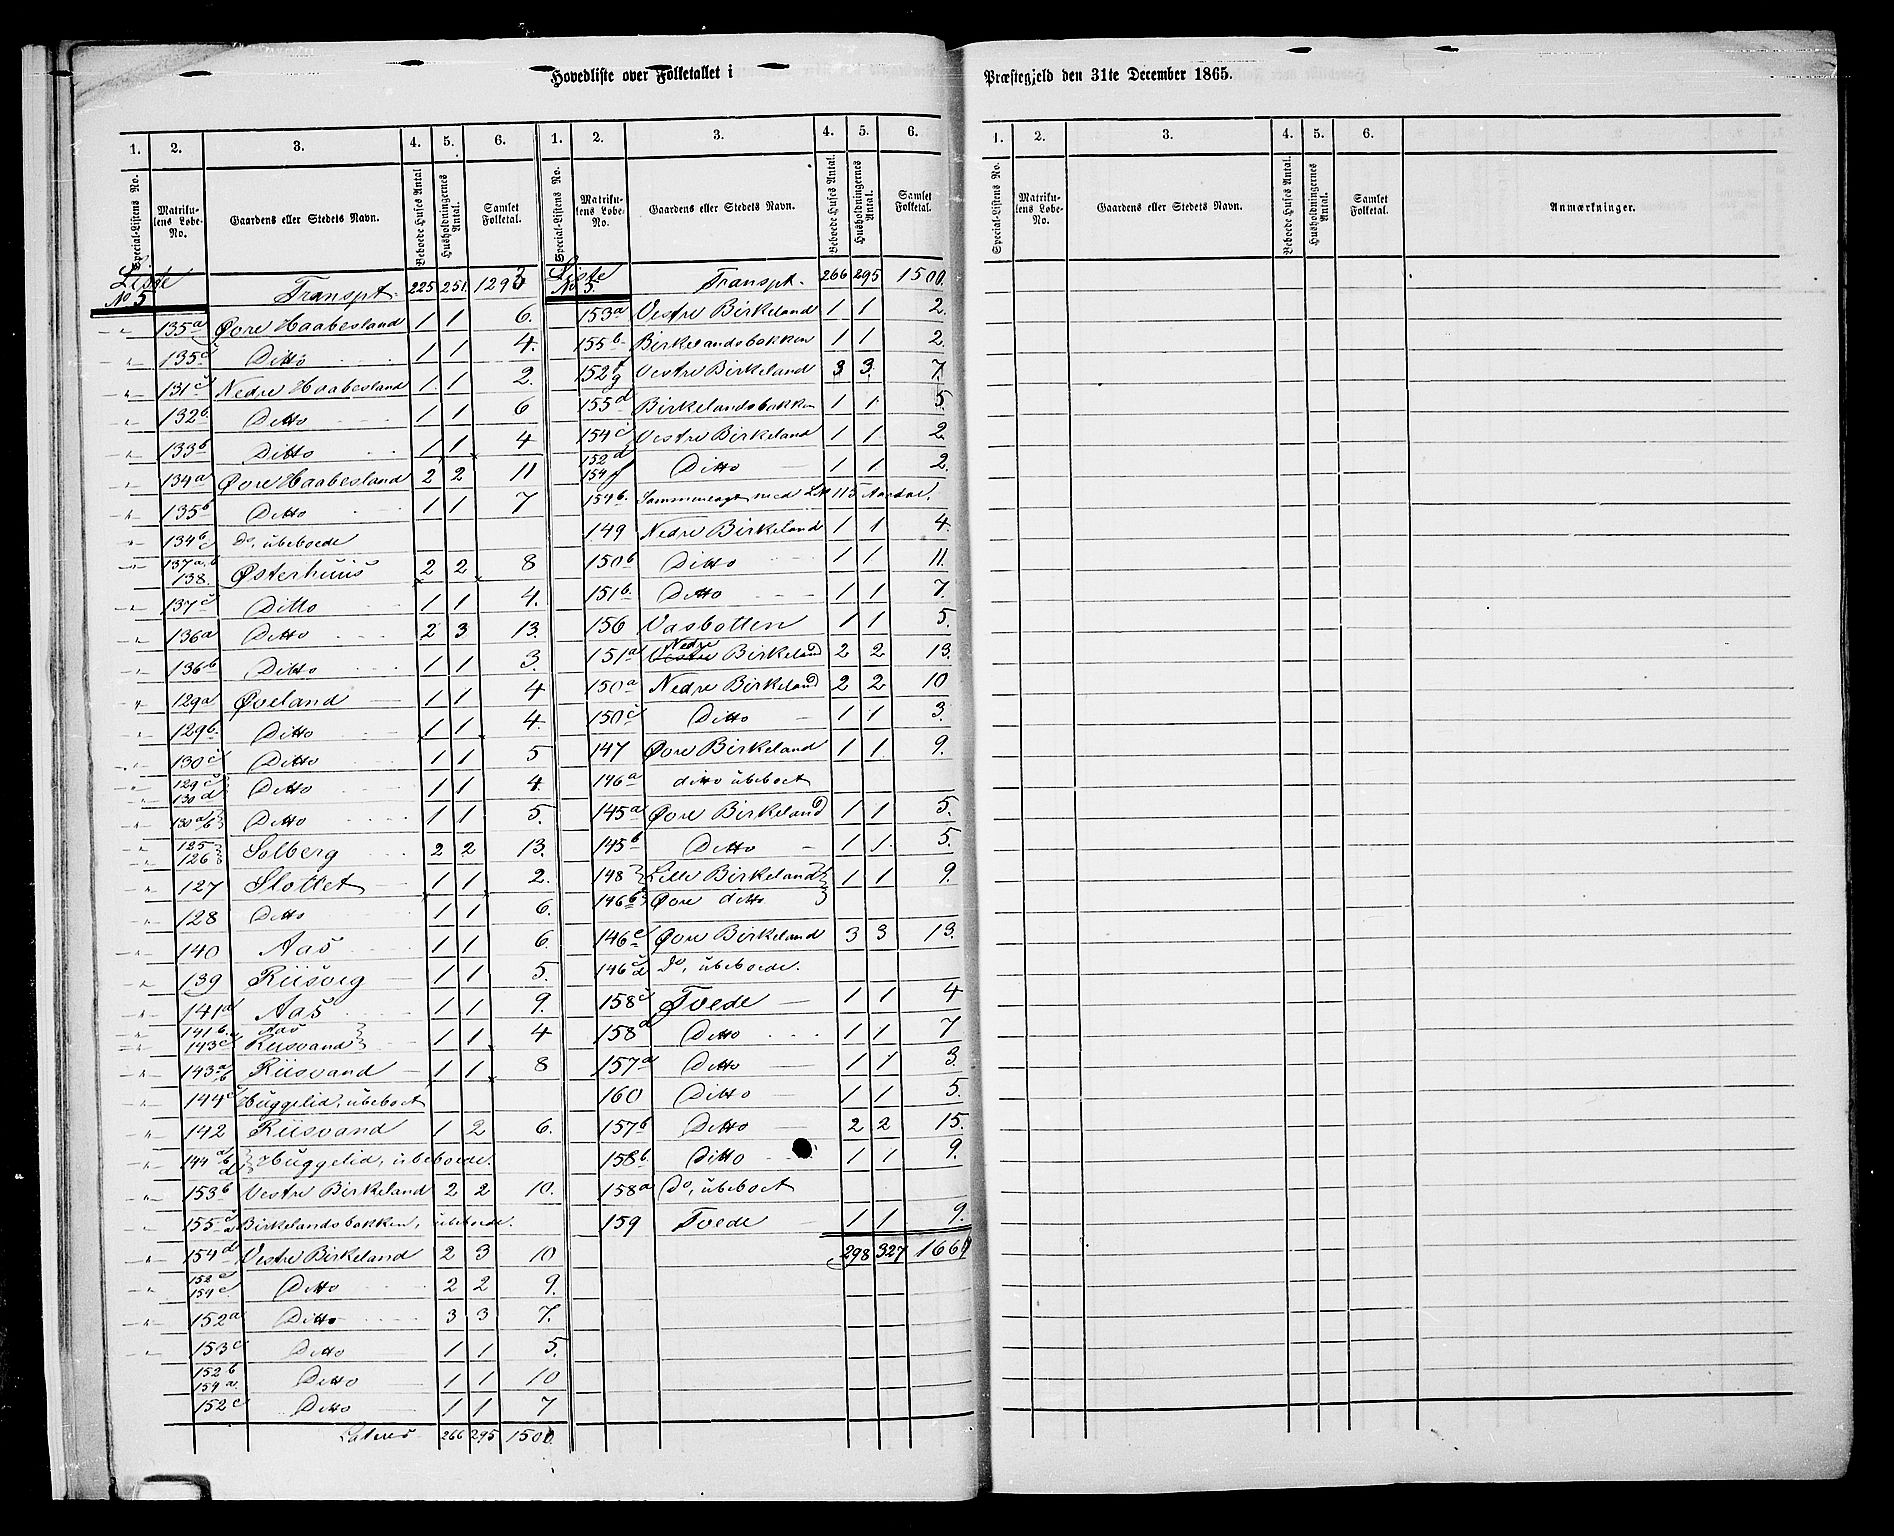 Hovedliste over Folketallet i
Præstegjeld den 31te December 1865.
1. 2. 3. 4. 5. 6.
Special-Listens No. Matrikulens Løbe-No. Gaardens eller Stedets Navn. Beboede Huses Antal Husholdningernes Antal. Samlet Folketal.
Liste No 5 Transpt. 225 251 1293
135a Øvre Haabesland 1 1 6.
135c Ditto 1 1 4.
131c Nedre Haabesland 1 1 2.
132b Ditto 1 1 6
133b Ditto 1 1 4
134a Øvre Haabesland 2 2 11
135b Ditto 1 1 7
134b c Do, ubeboede
137a,b 138. Østerhuus 2 2 8
137c Ditto 1 1 4.
136a Ditto 2 3 13.
136b Ditto 1 1 3.
129a Øveland 1 1 4
129b Ditto 1 1 4.
130c Ditto 1 1 5
129c 130d Ditto 1 1 4.
130a b Ditto 1 1 5.
125 126 Solberg 2 2 13.
127 Slottet 1 1 2.
128 Ditto 1 1 6.
140 Aas 1 1 6.
139 Riisveg 1 1 5.
141a Aas 1 1 9.
141b Aas
143c Riisvand 1 1 4
143a b Riisvand 1 1 8
144c Huggelid, ubeboet
142 Riisvand 1 2 6.
144a b d Huggelid, ubeboede.
153b Vestre Birkeland 2 2 10.
155c a Birkelandsbakken, ubeboede.
154d Vestre Birkeland 2 3 10
152e 154e Ditto 2 2 9.
152a Ditto 3 3 7.
153c Ditto 1 1 5.
152b 154a Ditto 1 1 10
152c Ditto 1 1 7
Lateres 266 295 1500.
1. 2. 3. 4. 5. 6.
Special-Listens No. Matrikulens Løbe-No. Gaardens eller Stedets Navn. Beboede Huses Antal. Husholdningernes Antal. Samlet Folketal.
Liste No 5. Transpt. 266 295 1500.
153a Vestre Birkeland 1 1 2.
155b Birkelandsbakken 1 1 2.
152f g Vestre Birkeland 3 3. 7.
155d Birkelandsbakken 1 1 5.
154c Vestre Birkeland 1 1 2.
152d 154f Ditto 1 1 2.
154b Sammenlagt med LN 115 Aardal.
149 Nedre Birkeland 1 1 4.
150b Ditto 1 1 11.
151b Ditto 1 1 7.
156 Vasbotten 1 1 5.
151a Vestre Nedre Birkeland 2 2 13.
150a Nedre Birkeland 2 2 10
150c Ditto 1 1 3.
147 Øvre Birkeland 1 1 9.
146a ditto ubeboet
145a Øvre Birkeland 1 1 5.
145b Ditto 1 1. 5.
148 Lille Birkeland 1 1 9.
146b Øvre ditto
146e Øvre Birkeland 3 3 13.
146c d Do, ubeboede.
158c Tvede 1 1 4
158d Ditto 1 1 7
157a Ditto 1 1 3.
160 Ditto 1 1 5.
157b Ditto 2 2 15.
158b Ditto 1 1 9.
158a Do, ubeboet
159 Tvede 1 1 9.
298 327
1. 2. 3. 4. 5. 6.
Special-Listens No. Matrikulens Løbe-No. Gaardens eller Stedets Navn. Beboede Huses Antal. Husholdningernes Antal. Samlet Folketal. Anmærkninger.